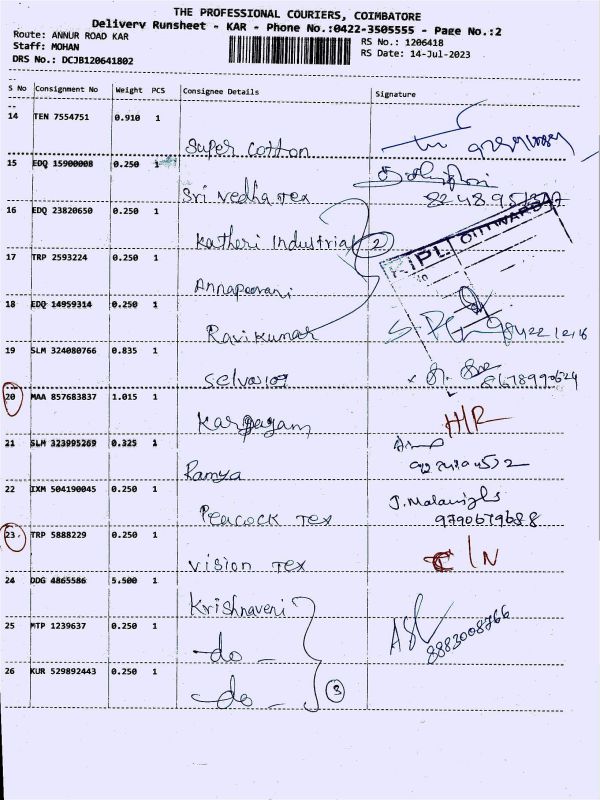 THE PROFESSIONAL COURIERS, COIMBATORE
Delivery Runsheet - KAR - Phone No.:0422-3505555 - Page No.:2
Route: ANNUR ROAD KAR
RS No.: 1206418
Staff: MOHAN
RS Date: 14-Jul-2023
DRS No.: DCJB120641802
S No Consignment No Weight PCS Consignee Details Signature
14 TEN 7554751 0.910 1
Super Cotton
15 EDQ 15900008 0.250 1
Sri Vedha Tex
16 EDQ 23820650 0.250 1
Katheri Industrial 2
KIPL
17 TRP 2593224 0.250 1
Annapoorani
18 EDQ 14959314 0.250 1
Ravikumar
19 SLM 324080766 0.835 1
Selvaraj 8678990624
20 MAA 857683837 1.015 1
Karpagam H/R
21 SLM 323995269 0.325 1
Ramya
22 IXM 504190045 0.250 1
Peacock Tex 9790679688
23 TRP 5888229 0.250 1
Vision Tex C/N
24 DDG 4865586 5.500 1
Krishnaveni
25 MTP 1239637 0.250 1
-do- 8883008766
26 KUR 529892443 0.250 1
-do- 3